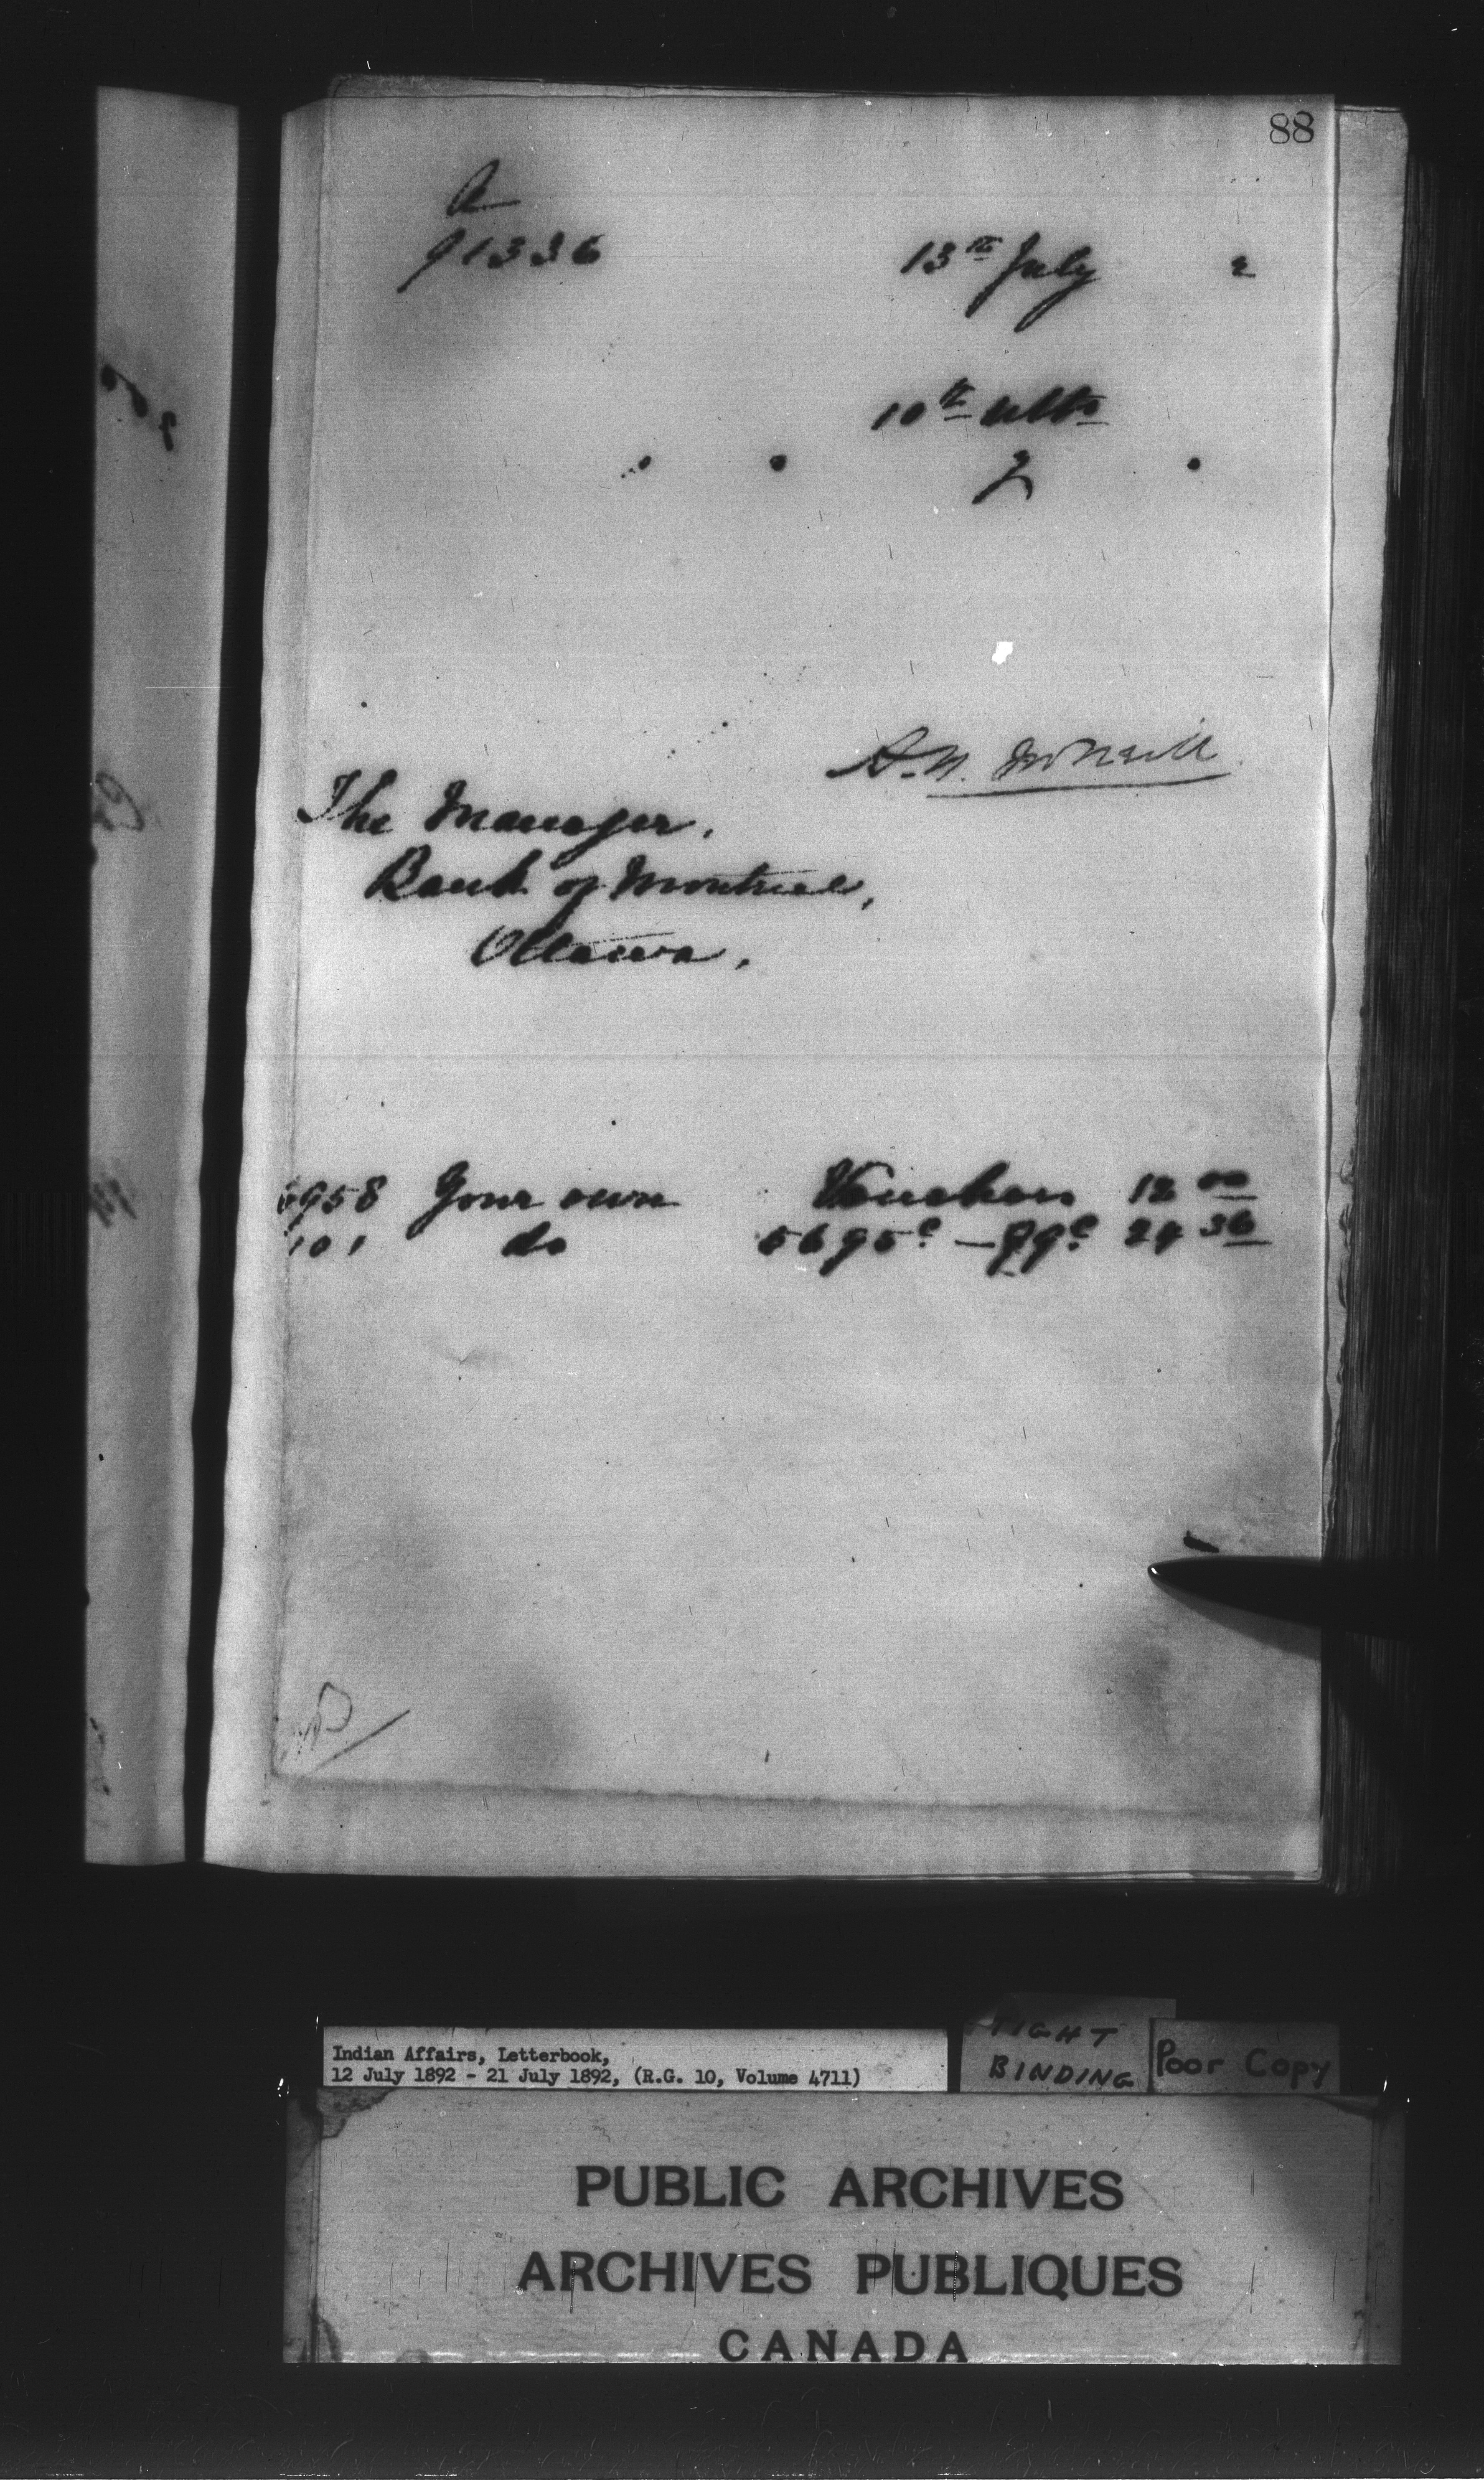 88
91336
13th July 2
10th ulto
2
A.N. McNeill
The Manager,
Bank of Montreal,
Ottawa,
958 Your own Vouchers 12 00
101 do 5695c — 99c 24 36
Indian Affairs, Letterbook,
12 July 1892 - 21 July 1892, (R.G. 10, Volume 4711)
TIGHT
BINDING
Poor Copy
PUBLIC ARCHIVES
ARCHIVES PUBLIQUES
CANADA